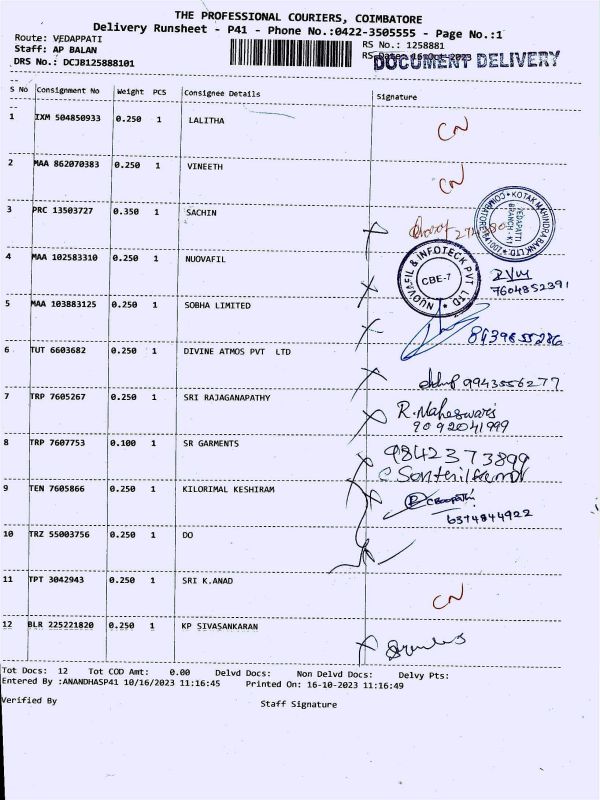 THE PROFESSIONAL COURIERS, COIMBATORE
Delivery Runsheet - P41 - Phone No.:0422-3505555 - Page No.:1
Route: VEDAPPATI
RS No.: 1258881
Staff: AP BALAN
DOCUMENT DELIVERY
DRS No.: DCJB125888101
S No Consignment No Weight PCS Consignee Details Signature
1 IXM 504850933 0.250 1 LALITHA CN
2 MAA 862070383 0.250 1 VINEETH CN
3 PRC 13503727 0.350 1 SACHIN
KOTAK MAHINDRA BANK LTD
VEDAPATTI
BRANCH - K1
COIMBATORE
4 MAA 102583310 0.250 1 NUOVAFIL
NUOVAFIL & INFOTECK PVT LTD
CBE-7
7604852391
5 MAA 103883125 0.250 1 SOBHA LIMITED
8439855286
6 TUT 6603682 0.250 1 DIVINE ATMOS PVT LTD
9943556277
7 TRP 7605267 0.250 1 SRI RAJAGANAPATHY R. Maheswari
9092041999
8 TRP 7607753 0.100 1 SR GARMENTS 9842373899
9 TEN 7605866 0.250 1 KILORIMAL KESHIRAM
6374844922
10 TRZ 55003756 0.250 1 DO
11 TPT 3042943 0.250 1 SRI K.ANAD CN
12 BLR 225221820 0.250 1 KP SIVASANKARAN
Tot Docs: 12 Tot COD Amt: 0.00 Delvd Docs: Non Delvd Docs: Delvy Pts:
Entered By :ANANDHASP41 10/16/2023 11:16:45 Printed On: 16-10-2023 11:16:49
Verified By Staff Signature